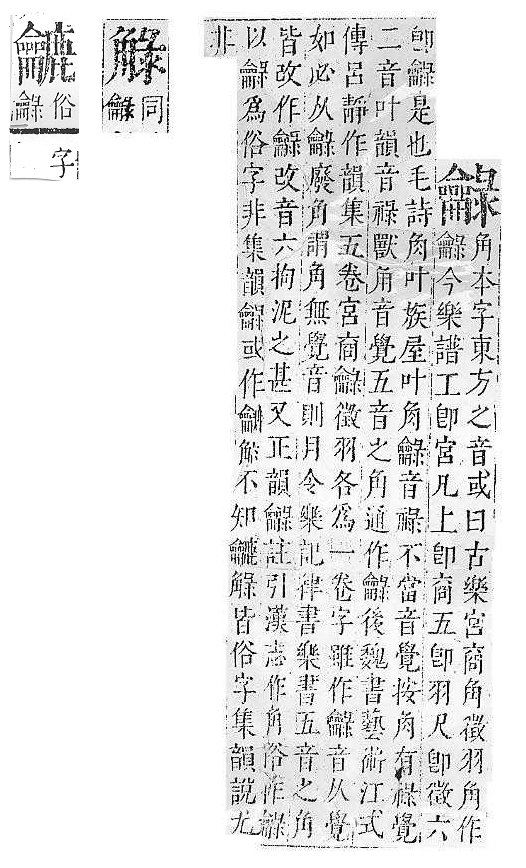 龣
角本字東方之音或曰古樂宮商角徵羽角作
龣今樂譜工卽宮凡上卽商五卽羽尺卽徵六
卽龣是也毛詩角叶族屋叶角龣音祿不當音覺按角有祿覺
二音叶韻音祿獸角音覺五音之角通作龣後魏書藝術江式
傳呂靜作韻集五卷宮商龣徵羽各爲一卷字雖作龣音从覺
如必从龣廢角謂角無覺音則月令樂記律書樂書五音之角
皆改作龣改音六拘泥之甚又正韻龣註引漢志作角俗作龣
以龣爲俗字非集韻龣或作觮不知觮皆俗字集韻說尤
非
觮
同
龣
俗
龣
字